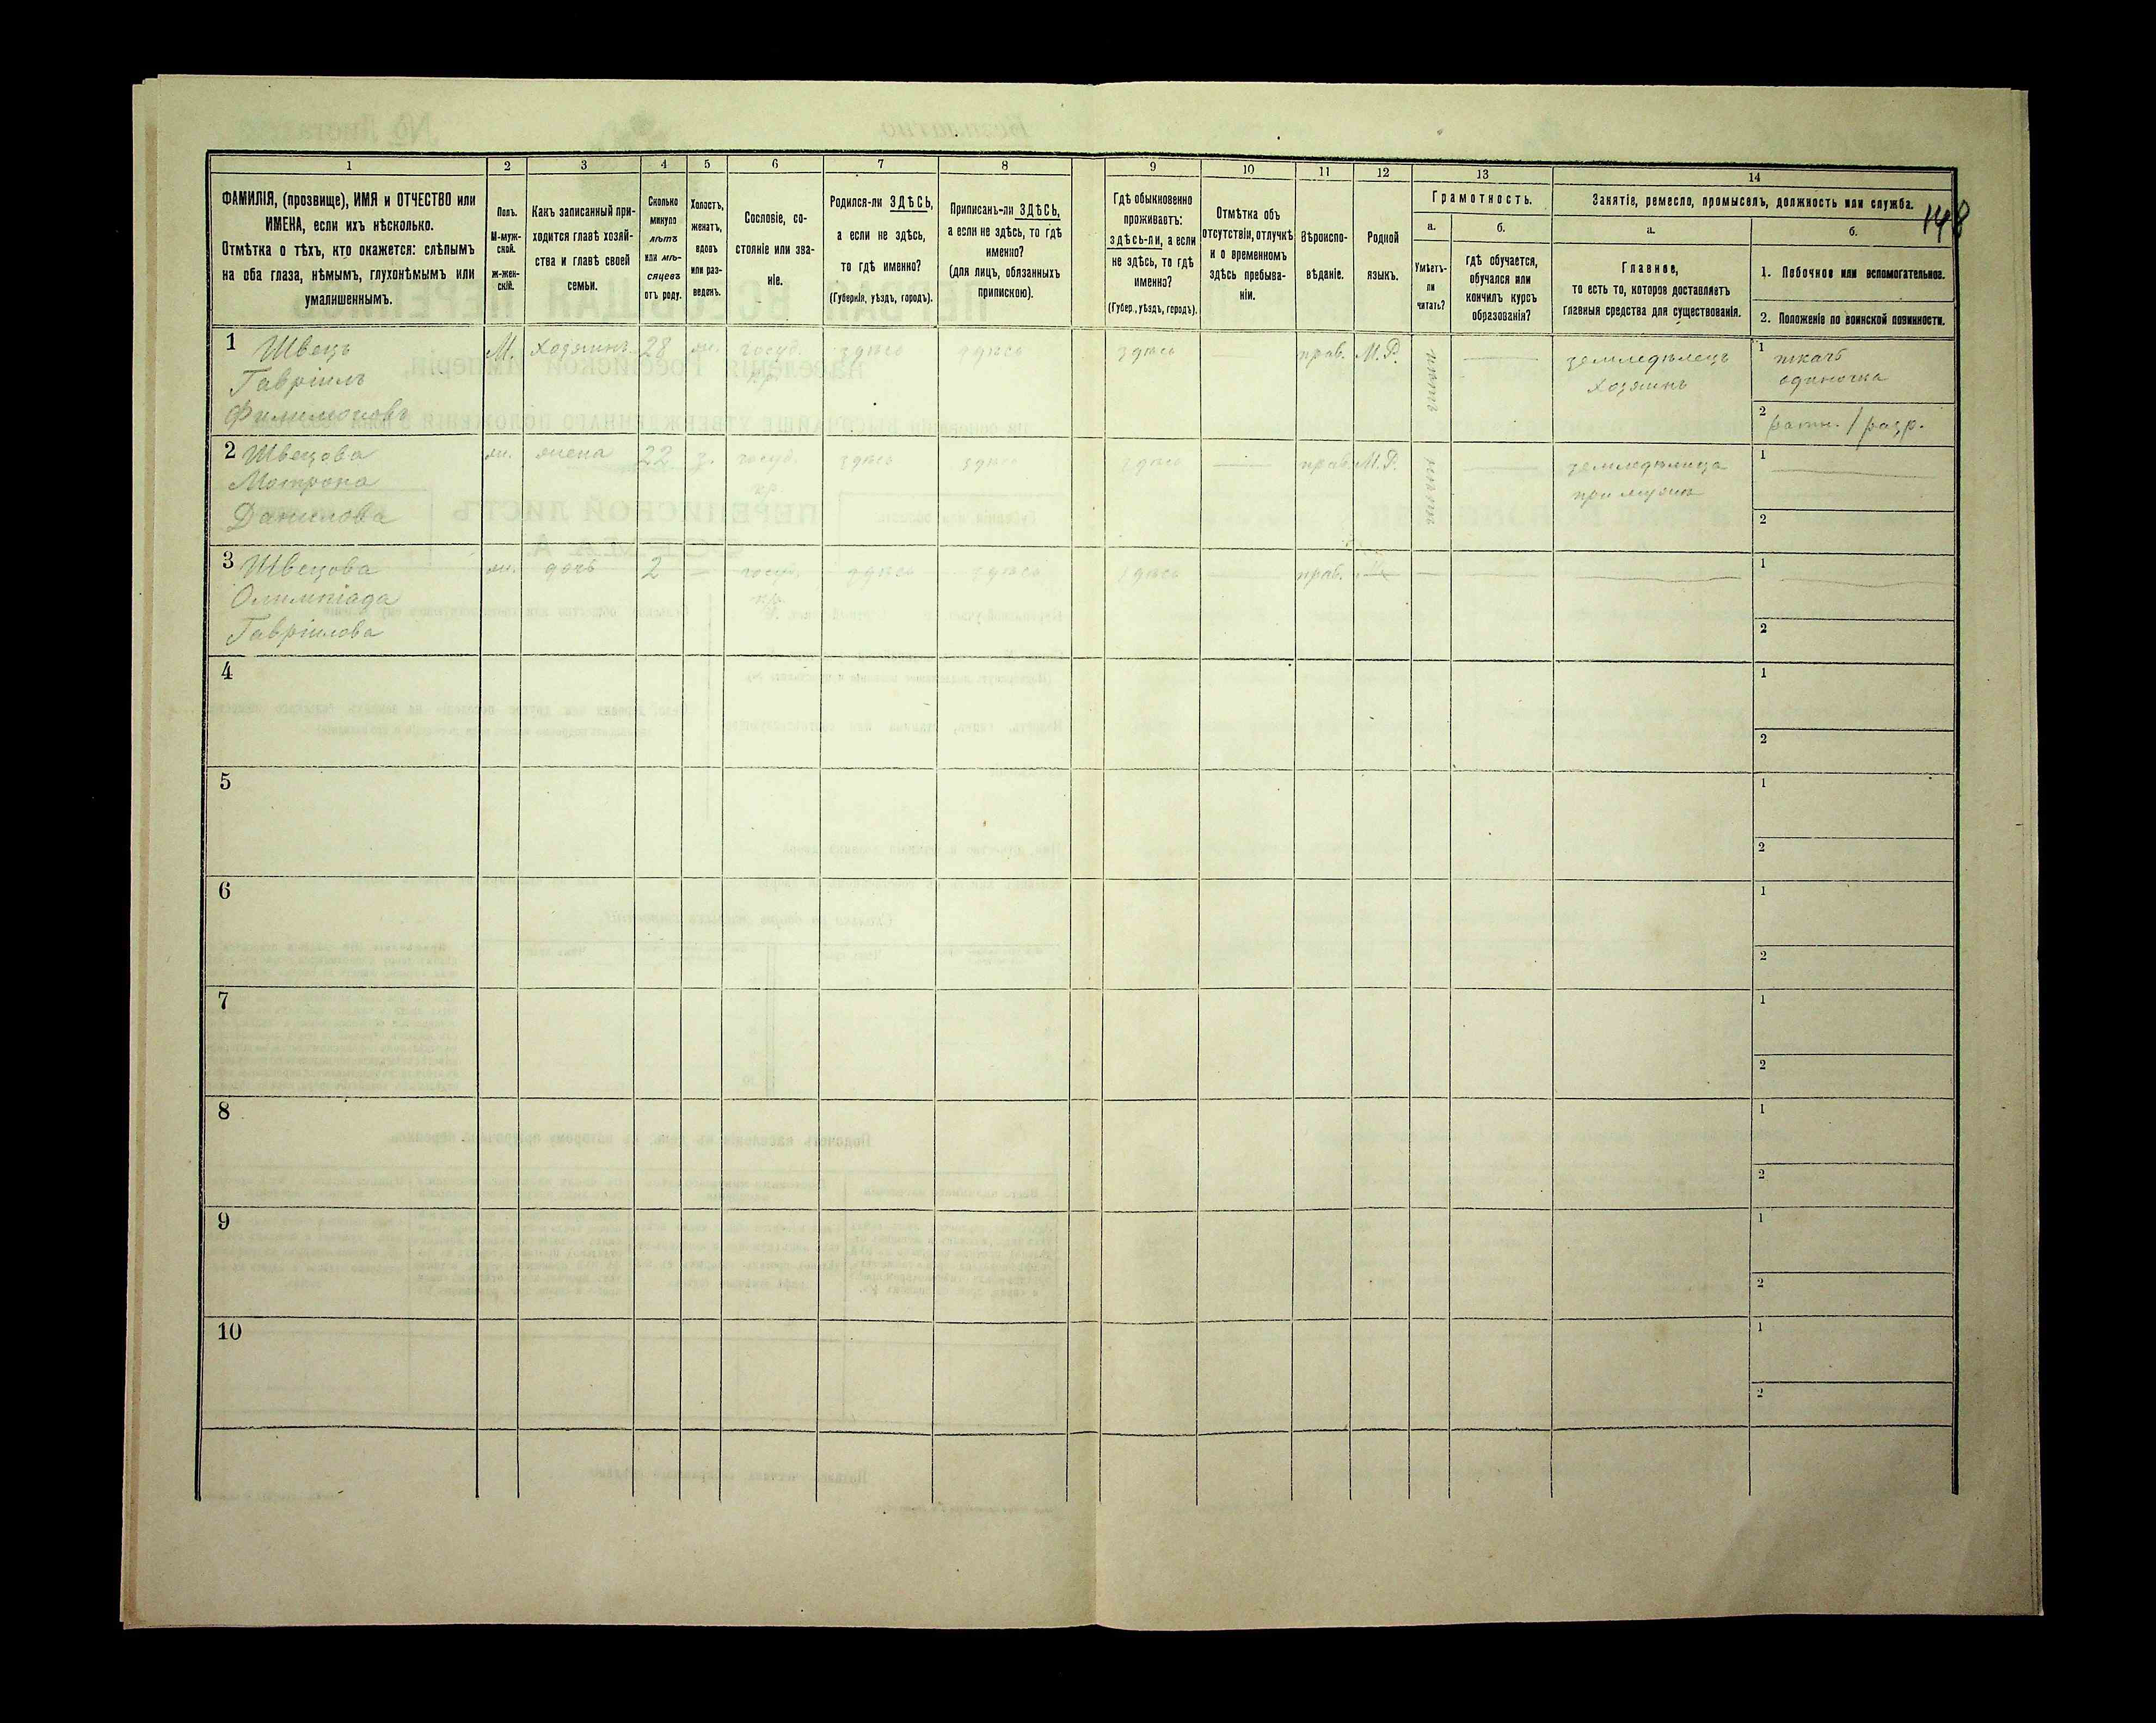 1 2 3 4 5 6 7 8 9 10 11 12 13 14
ФАМИЛІЯ, (прозвище), ИМЯ и ОТЧЕСТВО или
ИМЕНА, если ихъ нѣсколько.
Отмѣтка о тѣхъ, кто окажется: слѣпымъ
на оба глаза, нѣмымъ, глухонѣмымъ или
умалишеннымъ.
Полъ.
М-муж-
ской.
ж-жен-
скій.
Какъ записанный при-
ходится главѣ хозяй-
ства и главѣ своей
семьи.
Сколько
минуло
лѣтъ
или мѣ-
сяцевъ
отъ роду.
Холостъ,
женатъ,
вдовъ
или раз-
веденъ.
Сословіе, со-
стояніе или зва-
ніе.
Родился-ли ЗДѢСЬ,
а если не здѣсь,
то гдѣ именно?
(Губернія, уѣздъ, городъ).
Приписанъ-ли ЗДѢСЬ,
а если не здѣсь, то гдѣ
именно?
(для лицъ, обязанныхъ
припискою).
Гдѣ обыкновенно
проживаетъ:
здѣсь-ли, а если
не здѣсь, то гдѣ
именно?
(Губер., уѣздъ, городъ).
Отмѣтка объ
отсутствіи, отлучкѣ
и о временномъ
здѣсь пребыва-
ніи.
Вѣроиспо-
вѣданіе.
Родной
языкъ.
Грамотность.
а.
Умѣетъ-
ли
читать?
б.
гдѣ обучается,
обучался или
кончилъ курсъ
образованія?
Занятіе, ремесло, промыселъ, должность или служба.
148
а.
Главное,
то есть то, которое доставляетъ
главныя средства для существованія.
б.
1. Побочное или вспомогательное.
2. Положеніе по воинской повинности.
1 Швець М. хозяинъ 28 ж. госуд. здѣсь здѣсь здѣсь — прав. М.Р. — земледѣлецъ 1 ткачъ
Гавріилъ кр. хозяинъ одиночка
Филимоновъ 2 ратн. / разр.
2 Швецова ж. жена 22 з. госуд. здѣсь здѣсь здѣсь — прав. М.Р. — земледѣлица 1
Матрона кр. при мужѣ
Данилова 2
3 Швецова ж. дочь 2 — госуд. здѣсь здѣсь здѣсь — прав. — — — 1
Олимпіада кр.
Гавріилова 2
4 1
2
5 1
2
6 1
2
7 1
2
8 1
2
9 1
2
10 1
2